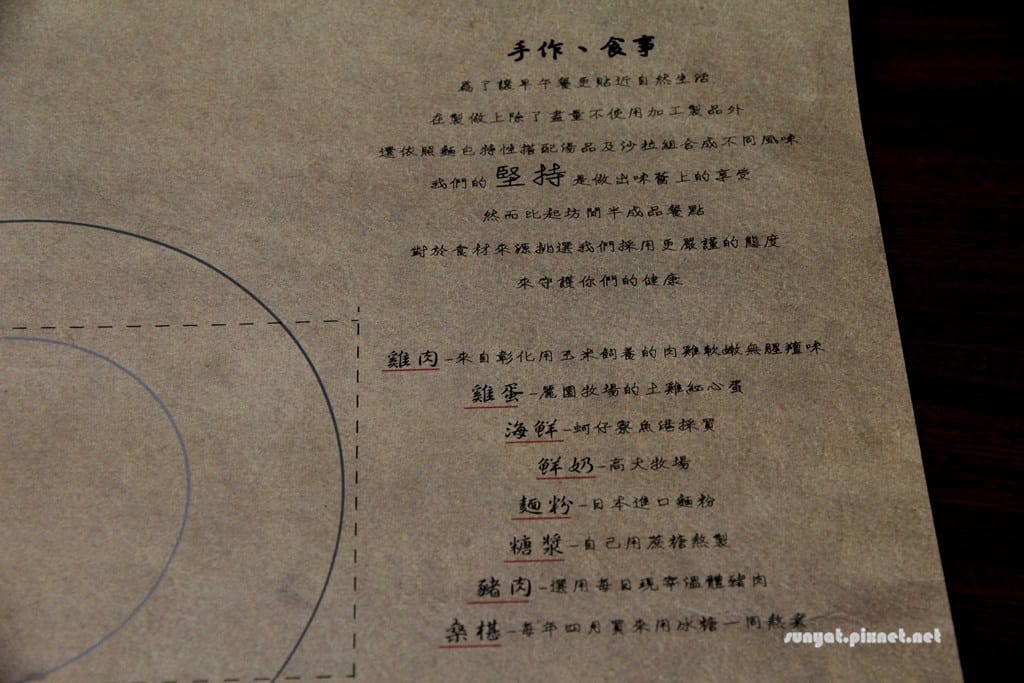 手作、食事
為了讓早午餐更貼近自然生活
在製做上除了盡量不使用加工製品外
還依照麵包特性搭配湯品及沙拉組合成不同風味
我們的堅持是做出味蕾上的享受
然而比起坊間半成品餐點
對於食材來源挑選我們採用更嚴謹的態度
來守護你們的健康
雞肉-來自彰化用玉米飼養的肉雞軟嫩無腥羶味
雞蛋-麗園牧場的土雞紅心蛋
海鮮-蚵仔寮魚港採買
鮮奶-高大牧場
麵粉-日本進口麵粉
糖漿-自己用蔗糖熬製
豬肉-選用每日現宰溫體豬肉
桑椹-每年四月買來用冰糖一同熬煮
sunyat.pixnet.net